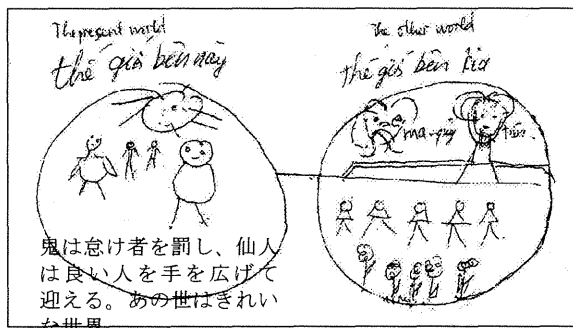 The present world
thế giới bên này
The other world
thế giới bên kia
ma-quỷ
tiên
鬼は怠け者を罰し、仙人
は良い人を手を広げて
迎える。あの世はきれい
な世界